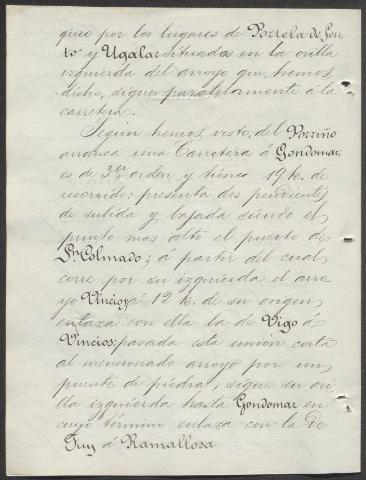 gireo por los lugares de Portela de Sou-
to y Ugalar situados en la orilla
izquierda del arroyo que, hemos,
dicho, sigue paralelamente á la
carretera.
Según hemos, visto, del Porriño
arranca una Carretera á Gondomar,
es de 3er orden y tiene 19 k. de
recorrido: presenta dos pendientes
de subida y bajada siendo el
punto mas alto el puerto de
Sn. Colmado; á partir del cual
corre por su izquierda el arro
yo Vincios á 12 k. de su origen
enlaza con ella la de Vigo á
Vincios: pasada esta unión corta
al mencionado arroyo por un
puente de piedra, sigue su ori
lla izquierda hasta Gondomar en
cuyo término enlaza con la de
Tuy á Ramallosa